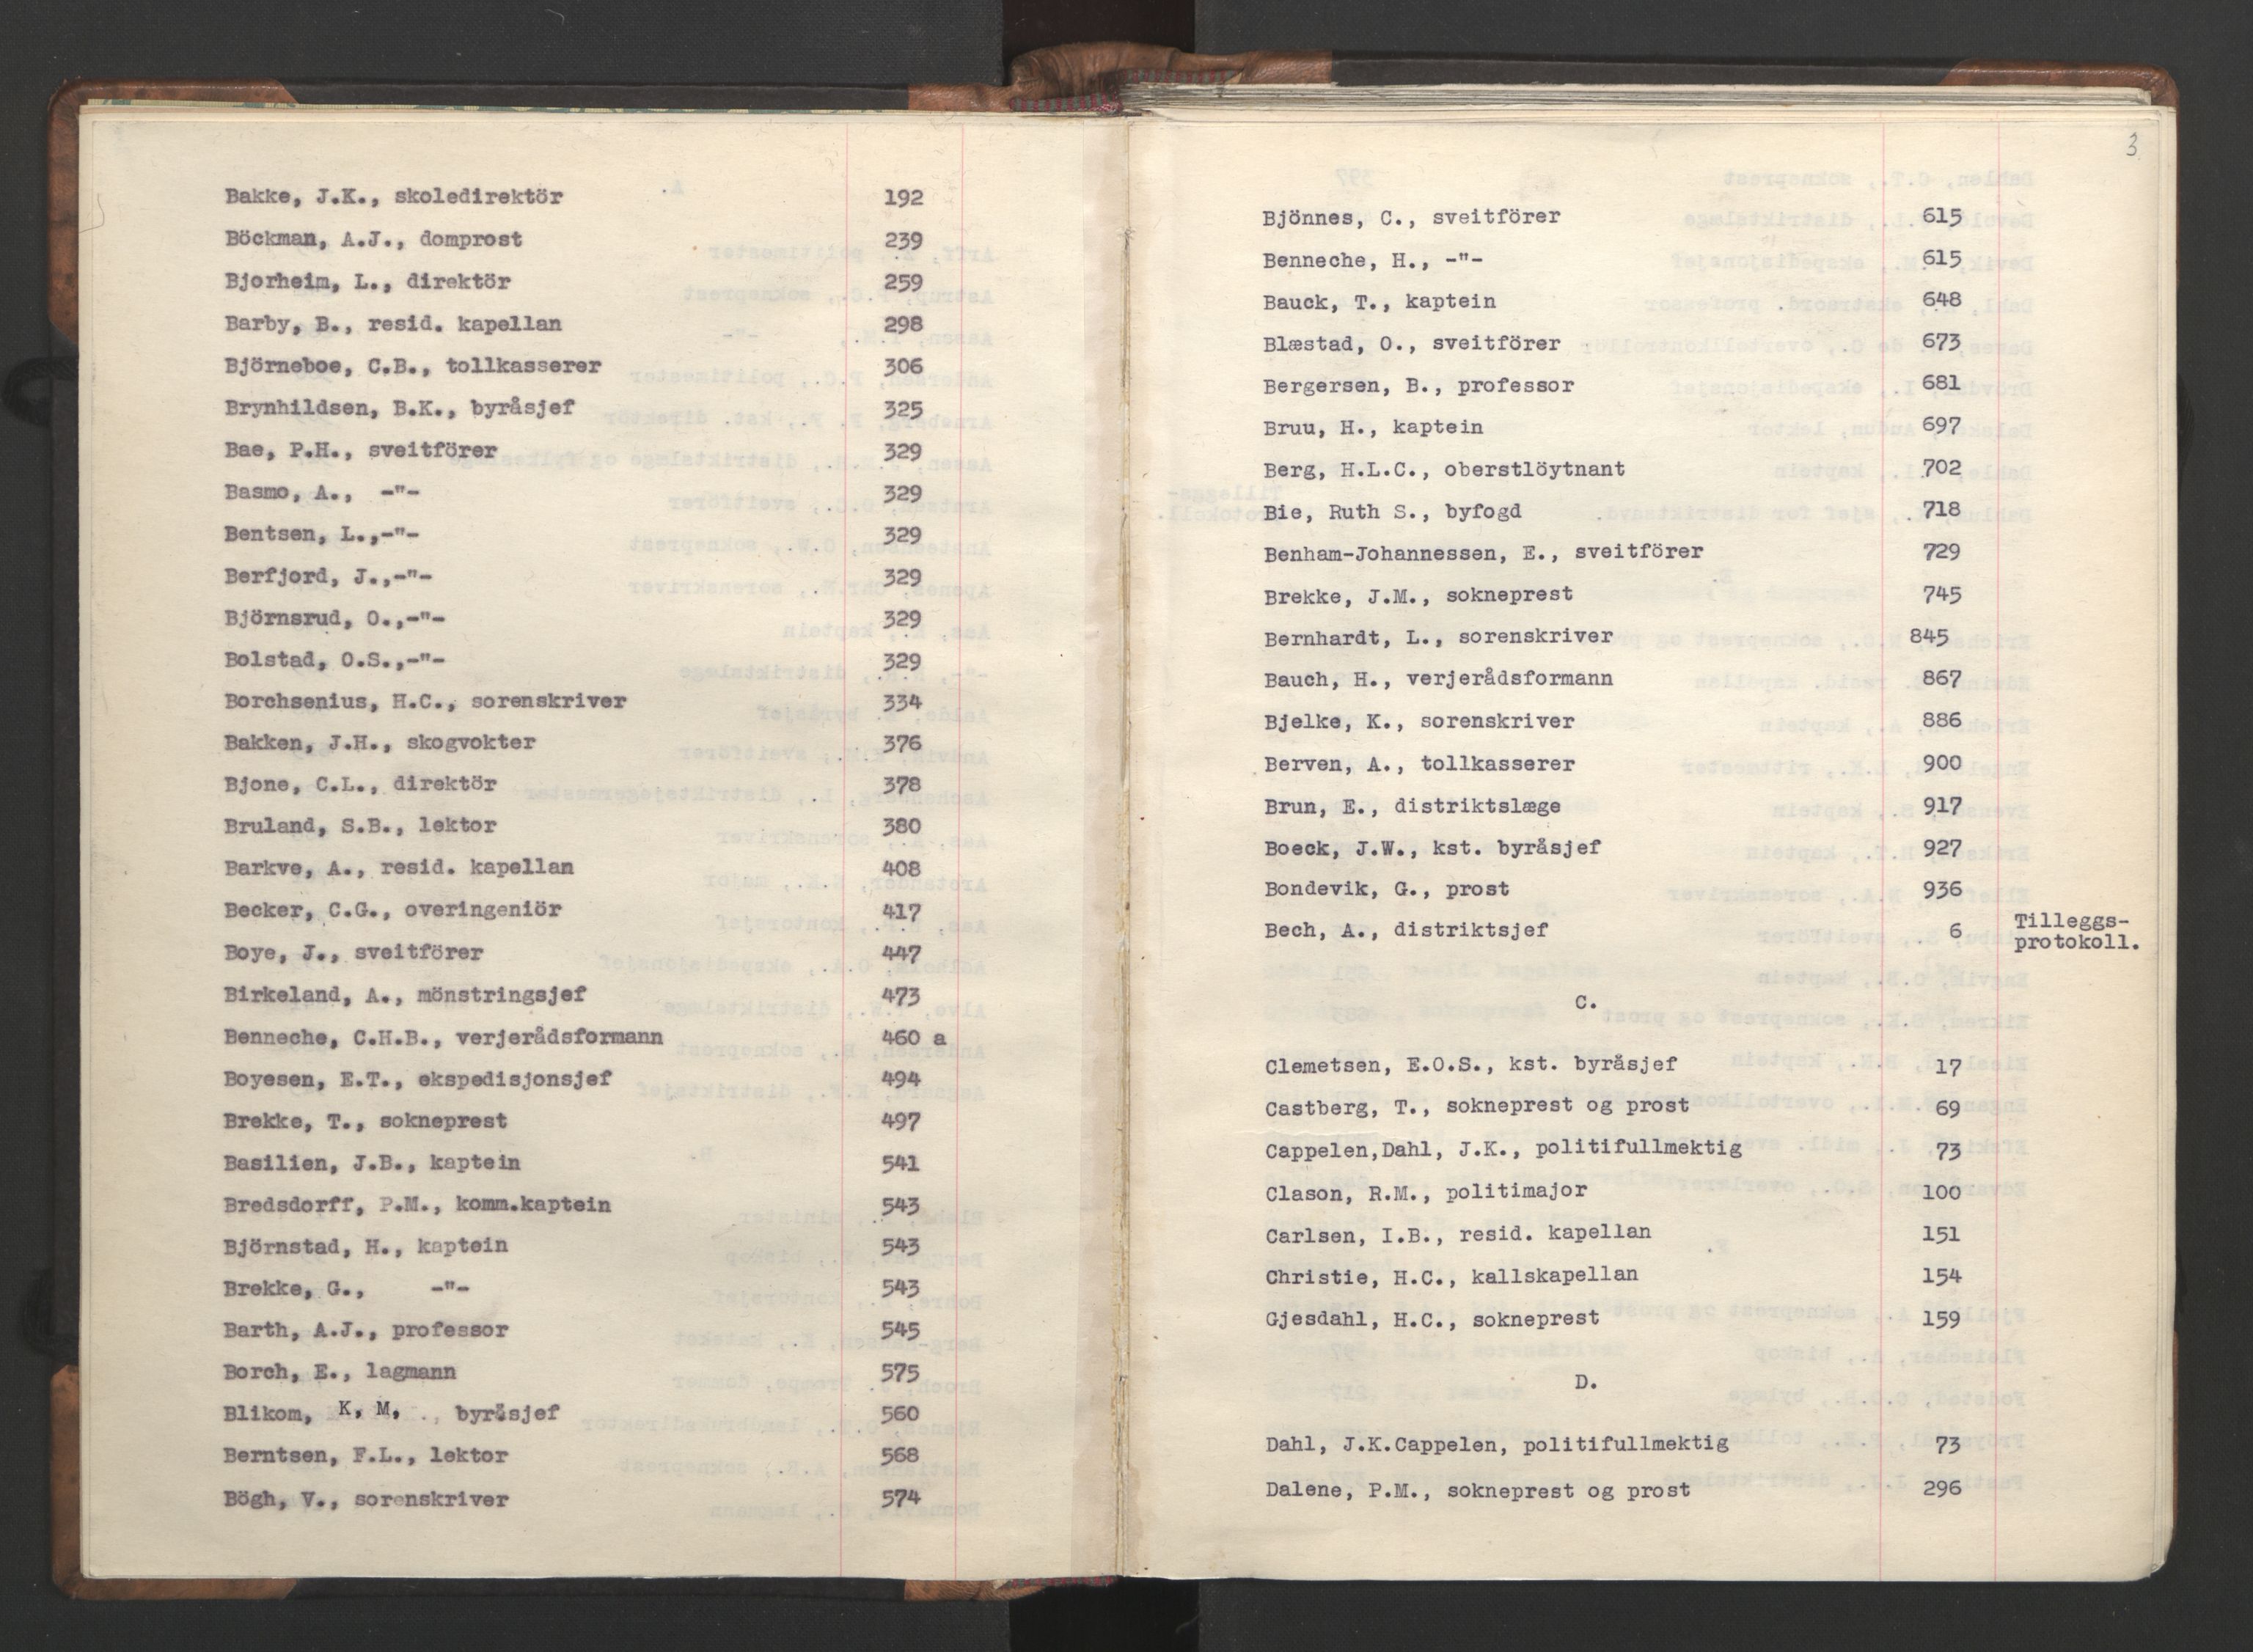 Bakke, J.K., skoledirektör 192
Böckman, A.J., domprost 239
Bjorheim, L., direktör 259
Barby, B., resid. kapellan 298
Björneboe, C.B., tollkasserer 306
Brynhildsen, B.K., byråsjef 325
Bae, P.H., sveitförer 329
Basmo, A., -"- 329
Bentsen, L.,-"- 329
Berfjord, J.,-"- 329
Björnsrud, O.,-"- 329
Bolstad, O.S.,-"- 329
Borchsenius, H.C., sorenskriver 334
Bakken, J.H., skogvokter 376
Bjone, C.L., direktör 378
Bruland, S.B., lektor 380
Barkve, A., resid. kapellan 408
Becker, C.G., overingeniör 417
Boye, J., sveitförer 447
Birkeland, A., mönstringsjef 473
Benneche, C.H.B., verjerådsformann 460 a
Boyesen, E.T., ekspedisjonsjef 494
Brekke, T., sokneprest 497
Basilien, J.B., kaptein 541
Bredsdorff, P.M., komm.kaptein 543
Björnstad, H., kaptein 543
Brekke, G., -"- 543
Barth, A.J., professor 545
Borch, E., lagmann 575
Blikom, K. M., byråsjef 560
Berntsen, F.L., lektor 568
Bögh, V., sorenskriver 574
3
Bjönnes, C., sveitförer 615
Benneche, H., -"- 615
Bauck, T., kaptein 648
Blæstad, O., sveitförer 673
Bergersen, B., professor 681
Bruu, H., kaptein 697
Berg, H.L.C., oberstlöytnant 702
Bie, Ruth S., byfogd 718
Benham-Johannessen, E., sveitförer 729
Brekke, J.M., sokneprest 745
Bernhardt, L., sorenskriver 845
Bauch, H., verjerådsformann 867
Bjelke, K., sorenskriver 886
Berven, A., tollkasserer 900
Brun, E., distriktslæge 917
Boeck, J.W., kst. byråsjef 927
Bondevik, G., prost 936
Bech, A., distriktsjef 6 Tilleggs-
protokoll.
C.
Clemetsen, E.O.S., kst. byråsjef 17
Castberg, T., sokneprest og prost 69
Cappelen,Dahl, J.K., politifullmektig 73
Clason, R.M., politimajor 100
Carlsen, I.B., resid. kapellan 151
Christie, H.C., kallskapellan 154
Gjesdahl, H.C., sokneprest 159
D.
Dahl, J.K.Cappelen, politifullmektig 73
Dalene, P.M., sokneprest og prost 296